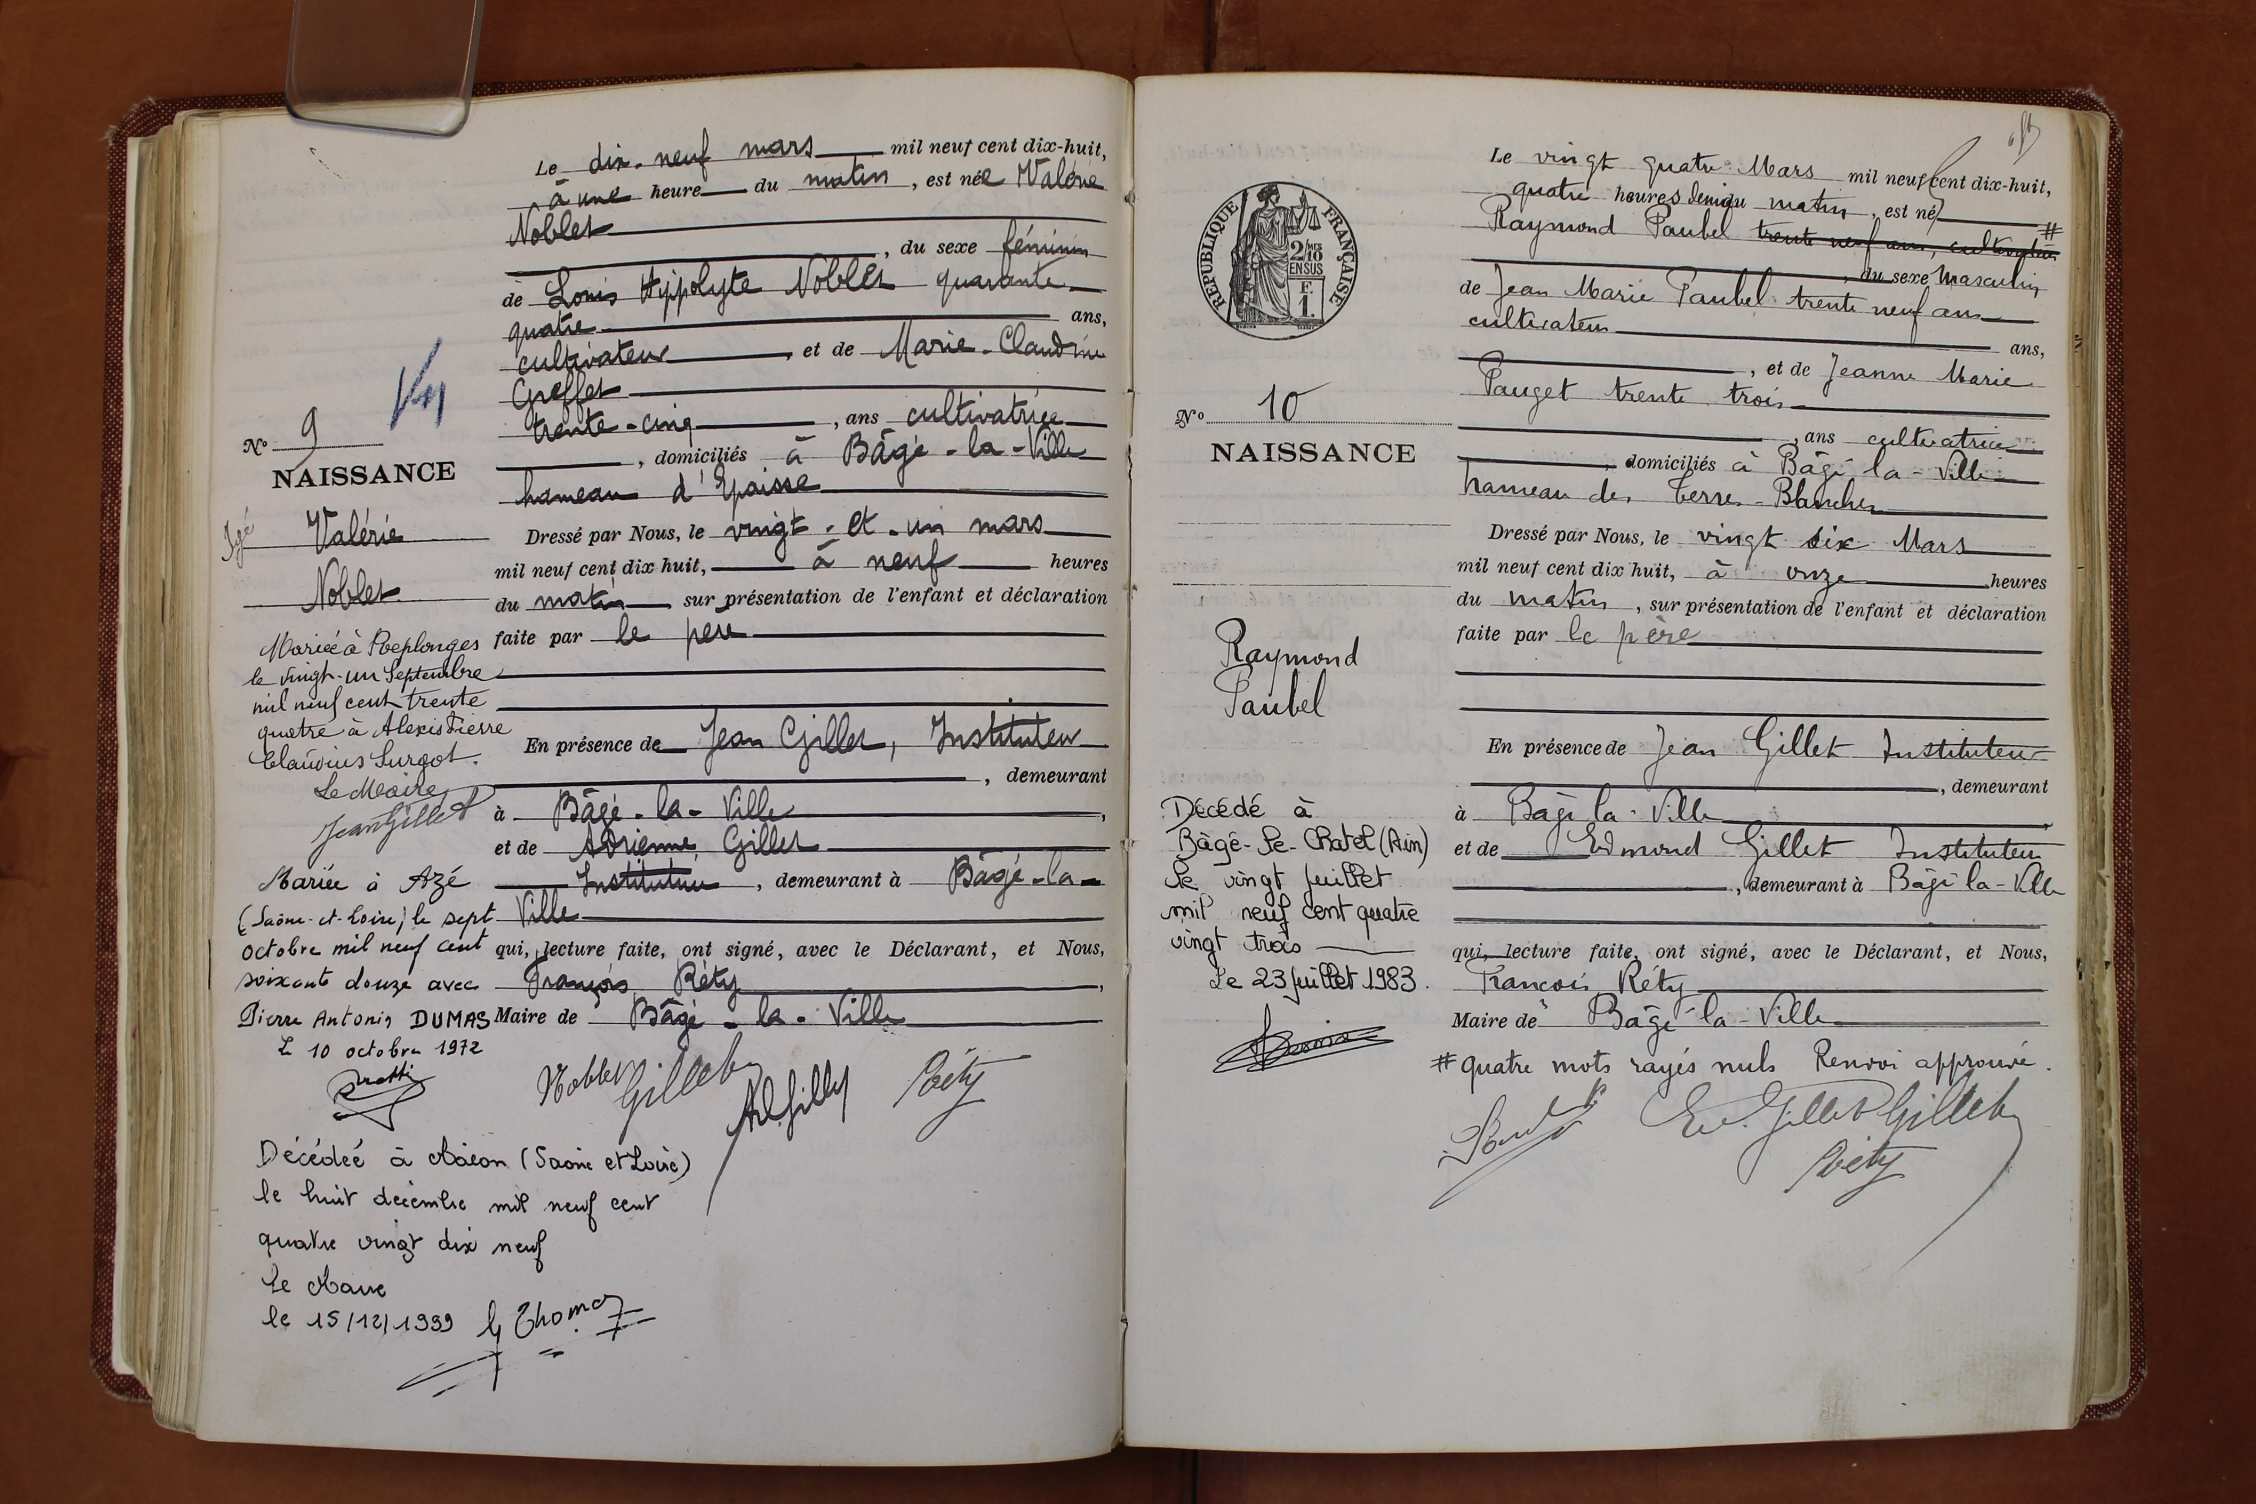 Le dix-neuf mars mil neuf cent dix-huit,
à une heure du matin, est née Valérie
Noblet
, du sexe féminin
de Louis Hippolyte Noblet quarante
quatre ans,
cultivateur, et de Marie-Claudine
Greffet
trente-cinq, ans cultivatrice
, domiciliés à Bâgé-la-Ville
hameau d'Epaisse
Dressé par Nous, le vingt-et-un mars
mil neuf cent dix huit, à neuf heures
du matin sur présentation de l'enfant et déclaration
faite par le père
En présence de Jean Gillet, Instituteur
, demeurant
à Bâgé-la-Ville,
et de Adrienne Gillet
Institutrice, demeurant à Bâgé-la-
Ville
qui, lecture faite, ont signé, avec le Déclarant, et Nous,
François Réty,
Maire de Bâgé-la-Ville
Noblet Gillet Ad. Gillet Réty
No 9
NAISSANCE
Igé
Valérie
Noblet
Mariée à Replonges
le vingt-un Septembre
mil neuf cent trente
quatre à Alexis Pierre
Claudius Surgot.
Le Maire
Jean Gillet
Mariée à Azé
(Saône-et-Loire) le sept
octobre mil neuf cent
soixante douze avec
Pierre Antonin DUMAS
Le 10 octobre 1972
Décédée à Mâcon (Saône et Loire)
le huit décembre mil neuf cent
quatre vingt dix neuf
Le Maire
le 15/12/1999 G Thomas
Le vingt quatre Mars mil neuf cent dix-huit,
quatre heures demi du matin, est né
Raymond Paubel trente neuf ans, cultivateur #
, du sexe masculin
de Jean Marie Paubel trente neuf ans
cultivateur
ans,
, et de Jeanne Marie
Pauget trente trois
, ans cultivatrice
, domiciliés à Bâgé-la-Ville
hameau des Terres-Blanches
Dressé par Nous, le vingt six Mars
mil neuf cent dix huit, à onze heures
du matin, sur présentation de l'enfant et déclaration
faite par le père
En présence de Jean Gillet Instituteur
, demeurant
à Bâgé la-Ville,
et de Edmond Gillet Instituteur
, demeurant à Bâgé la-Ville
qui, lecture faite, ont signé, avec le Déclarant, et Nous,
François Réty
Maire de Bâgé-la-Ville
# quatre mots rayés nuls Renvoi approuvé.
Ed. Gillet Gillet
Réty
RÉPUBLIQUE FRANÇAISE
2/10 MES
EN SUS
F.
1.
No 10
NAISSANCE
Raymond
Paubel
Décédé à
Bâgé-Le-Chatel (Ain)
Le vingt juillet
mil neuf cent quatre
vingt trois
Le 23 juillet 1983.